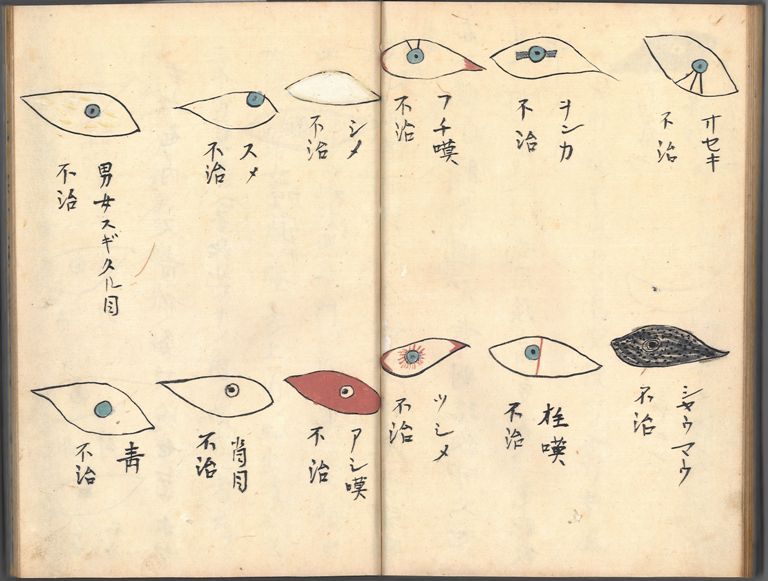 オセキ
不治
ヲンカ
不治
フチ嗼
不治
シメ
不治
スメ
不治
男女スギタル目
不治
シヤウマウ
不治
嗼
不治
ツシメ
不治
アシ嗼
不治
肖目
不治
青
不治